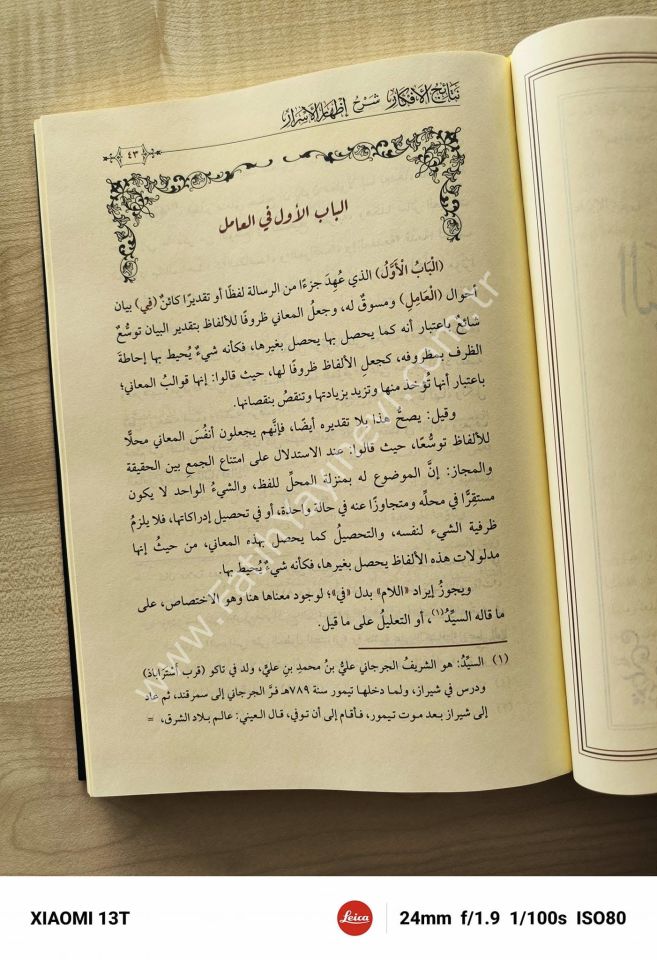 نتائج الأفكار شرح إظهار الأسرار
٤٣
الباب الأول في العامل
(الْبَابُ الْأَوَّلُ) الذي عُهِدَ جزءًا من الرسالة لفظًا أو تقديرًا كائنٌ (فِي) بيان
أحوال (الْعَامِلِ) ومسوقٌ له، وجعلُ المعاني ظروفًا للألفاظ بتقدير البيان توسُّعٌ
شائعٌ باعتبار أنه كما يحصل بها يحصل بغيرها، فكأنه شيءٌ يُحيط بها إحاطةَ
الظرف بمظروفه، كجعلِ الألفاظ ظروفًا لها، حيث قالوا: إنها قوالبُ المعاني؛
باعتبار أنها تُؤخذ منها وتزيد بزيادتها وتنقصُ بنقصانها.
وقيل: يصحُّ هذا بلا تقديره أيضًا، فإنَّهم يجعلون أنفُسَ المعاني محلًّا
للألفاظ توسُّعًا، حيث قالوا: عند الاستدلال على امتناع الجمعِ بين الحقيقة
والمجاز: إنَّ الموضوع له بمنزلة المحلِّ للفظ، والشيءُ الواحد لا يكون
مستقِرًّا في محلِّه ومتجاوزًا عنه في حالة واحدة، أو في تحصيل إدراكاتها، فلا يلزمُ
ظرفية الشيء لنفسه، والتحصيلُ كما يحصل بهذه المعاني، من حيثُ إنها
مدلولات هذه الألفاظ يحصل بغيرها، فكأنه شيءٌ يُحيط بها.
ويجوزُ إيراد «اللام» بدل «في»؛ لوجود معناها هنا وهو الاختصاص، على
ما قاله السيِّدُ(١)، أو التعليلُ على ما قيل.
(١) السيِّدُ: هو الشريفُ الجرجاني عليُّ بنُ محمدِ بنِ عليٍّ، ولد في تاكو (قرب أستراباذ)
ودرس في شيراز، ولما دخلها تيمور سنة ٧٨٩هـ فرَّ الجرجاني إلى سمرقند، ثم عاد
إلى شيراز بعد موت تيمور، فأقام إلى أن توفي، قال العيني: عالم بلاد الشرق، =
XIAOMI 13T
Leica
24mm f/1.9 1/100s ISO80